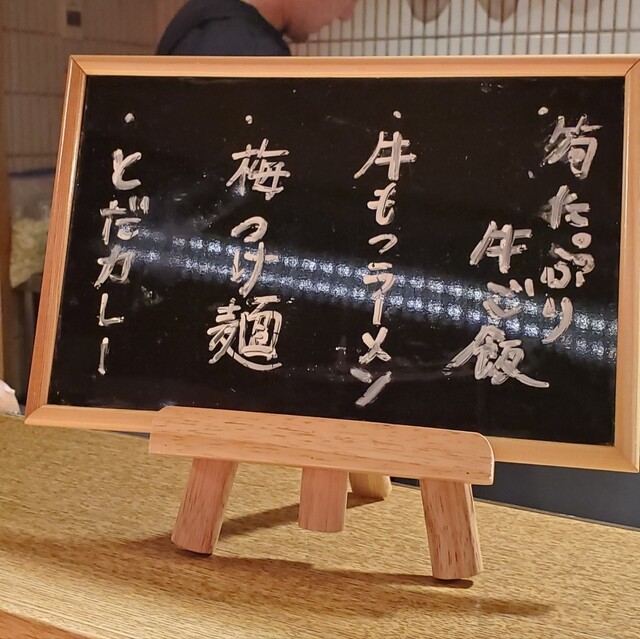 ・筍たっぷり
牛ご飯
・牛もつラーメン
・梅つけ麺
・とだカレー